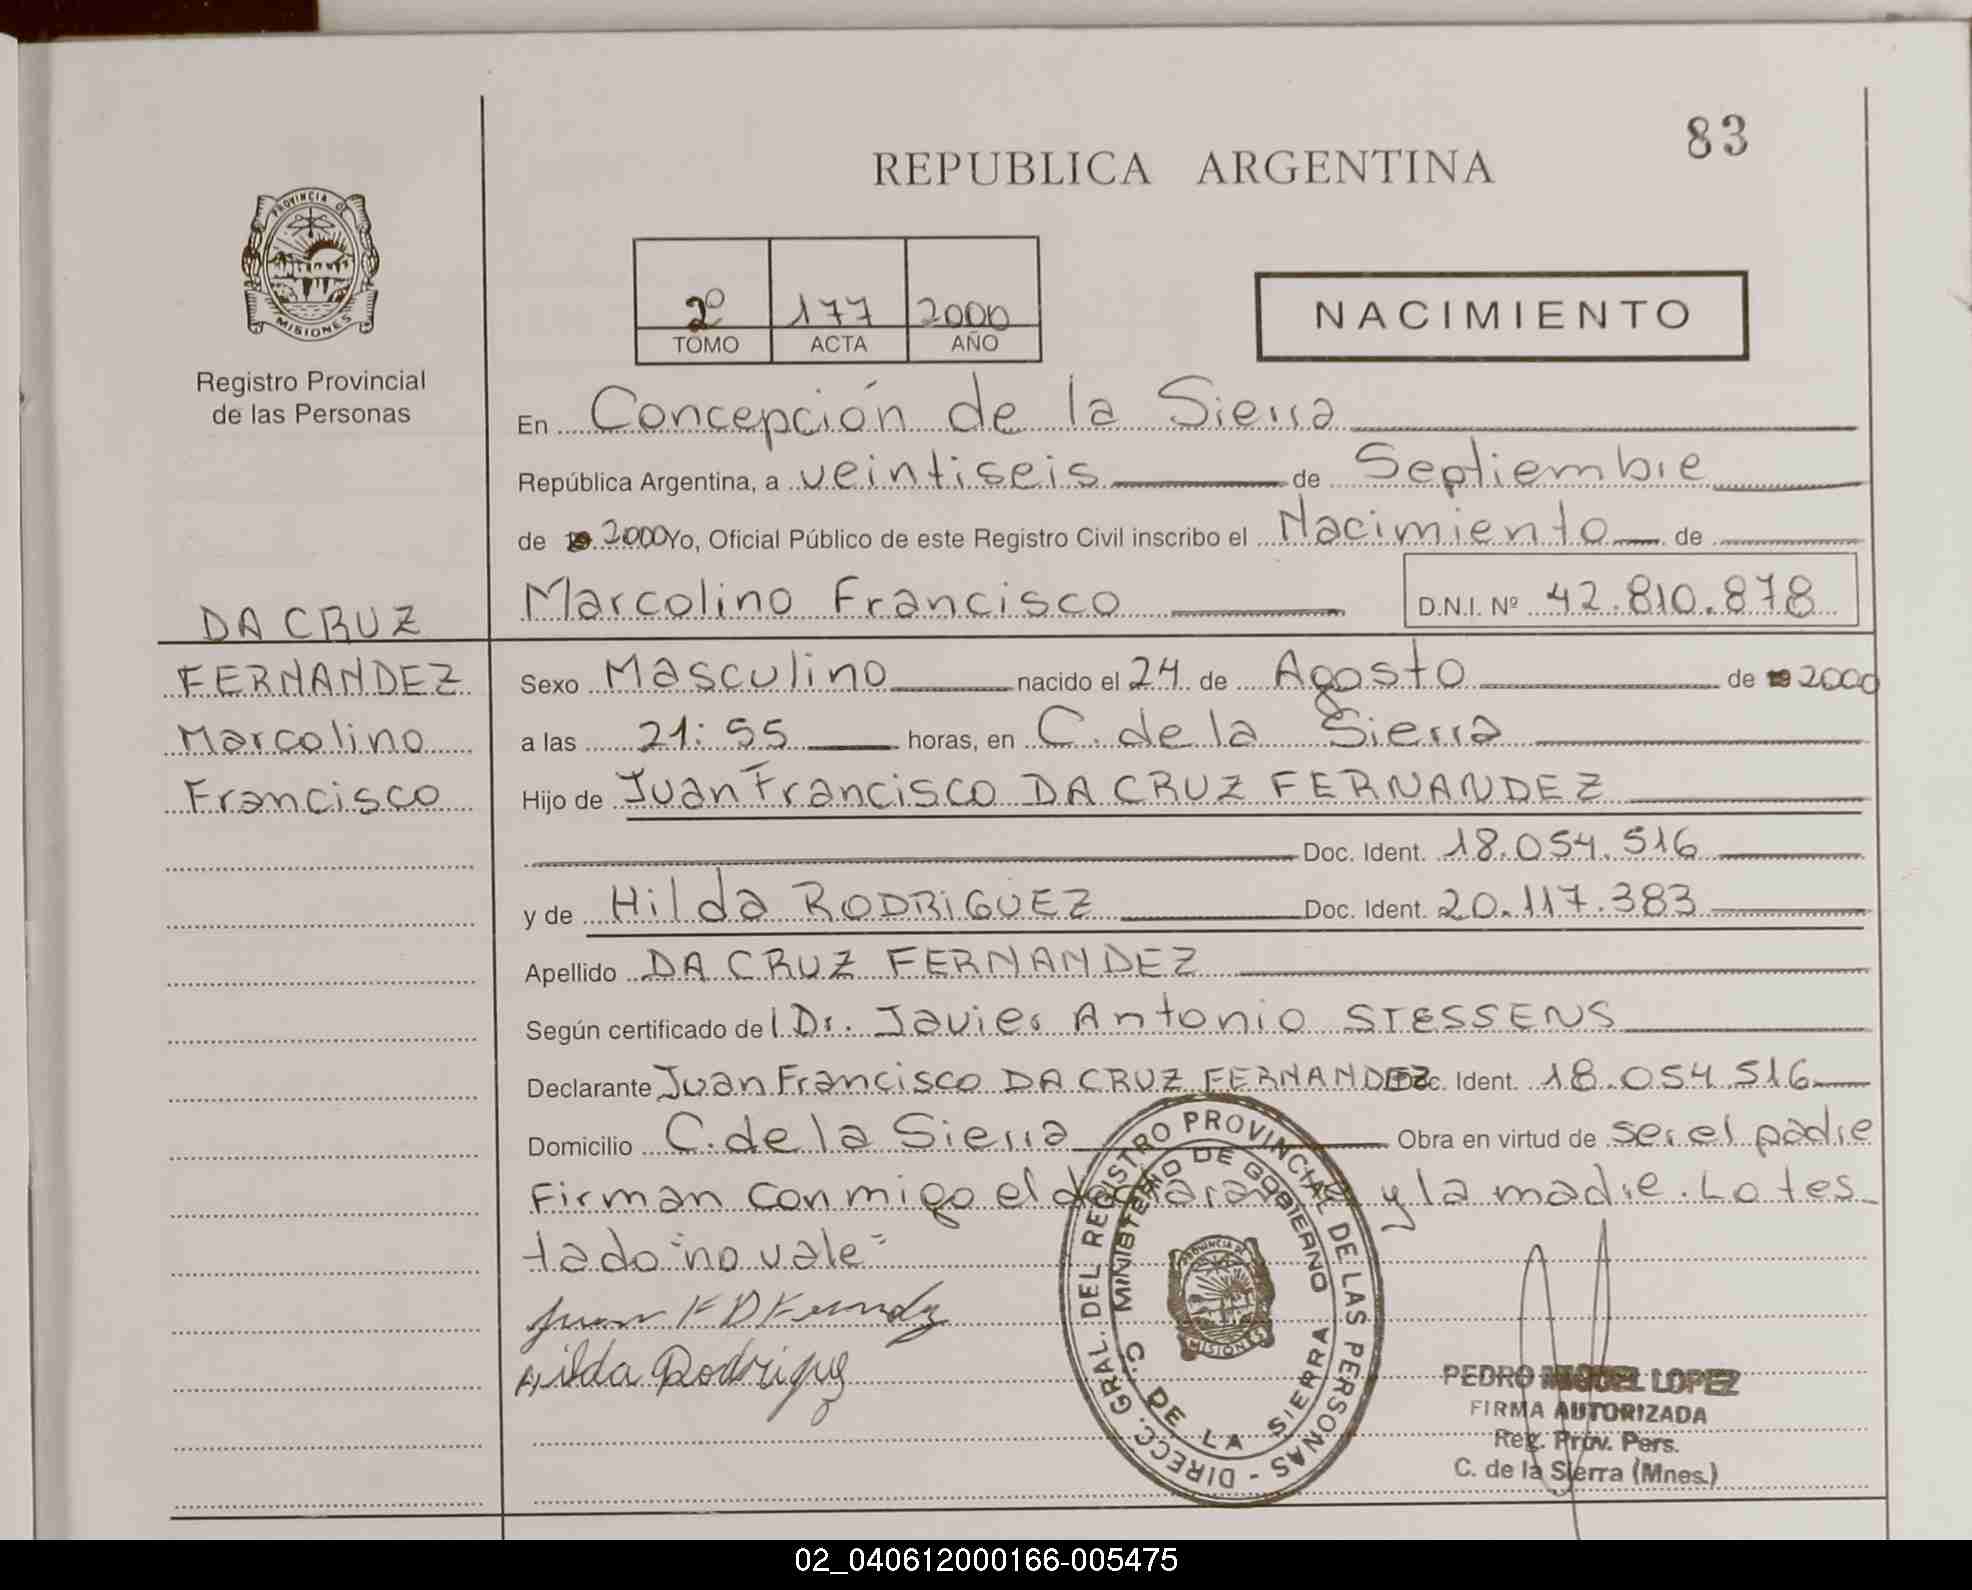 83
REPUBLICA ARGENTINA
PROVINCIA DE
MISIONES
Registro Provincial
de las Personas
2º 177 2000
TOMO ACTA AÑO
NACIMIENTO
En Concepción de la Sierra
República Argentina, a veintiseis de Septiembre
de 19 2000 Yo, Oficial Público de este Registro Civil inscribo el Nacimiento de
Marcolino Francisco D.N.I. Nº 42.810.878
DA CRUZ
FERNANDEZ
Marcolino
Francisco
Sexo Masculino nacido el 24 de Agosto de 19 2000
a las 21:55 horas, en C. de la Sierra
Hijo de Juan Francisco DA CRUZ FERNANDEZ
Doc. Ident. 18.054.516
y de Hilda RODRIGUEZ Doc. Ident. 20.117.383
Apellido DA CRUZ FERNANDEZ
Según certificado del Dr. Javier Antonio STESSENS
Declarante Juan Francisco DA CRUZ FERNANDEZ Doc. Ident. 18.054.516
Domicilio C. de la Sierra Obra en virtud de ser el padre
Firman conmigo el declarante y la madre. Lo tes
tado "no vale"
Juan F D Fernandz
Hilda Rodriguez
DIRECC. GRAL. DEL REGISTRO PROVINCIAL DE LAS PERSONAS -
MINISTERIO DE GOBIERNO
C. DE LA SIERRA
PROVINCIA DE
MISIONES
PEDRO MIGUEL LOPEZ
FIRMA AUTORIZADA
Reg. Prov. Pers.
C. de la Sierra (Mnes.)
02_040612000166-005475